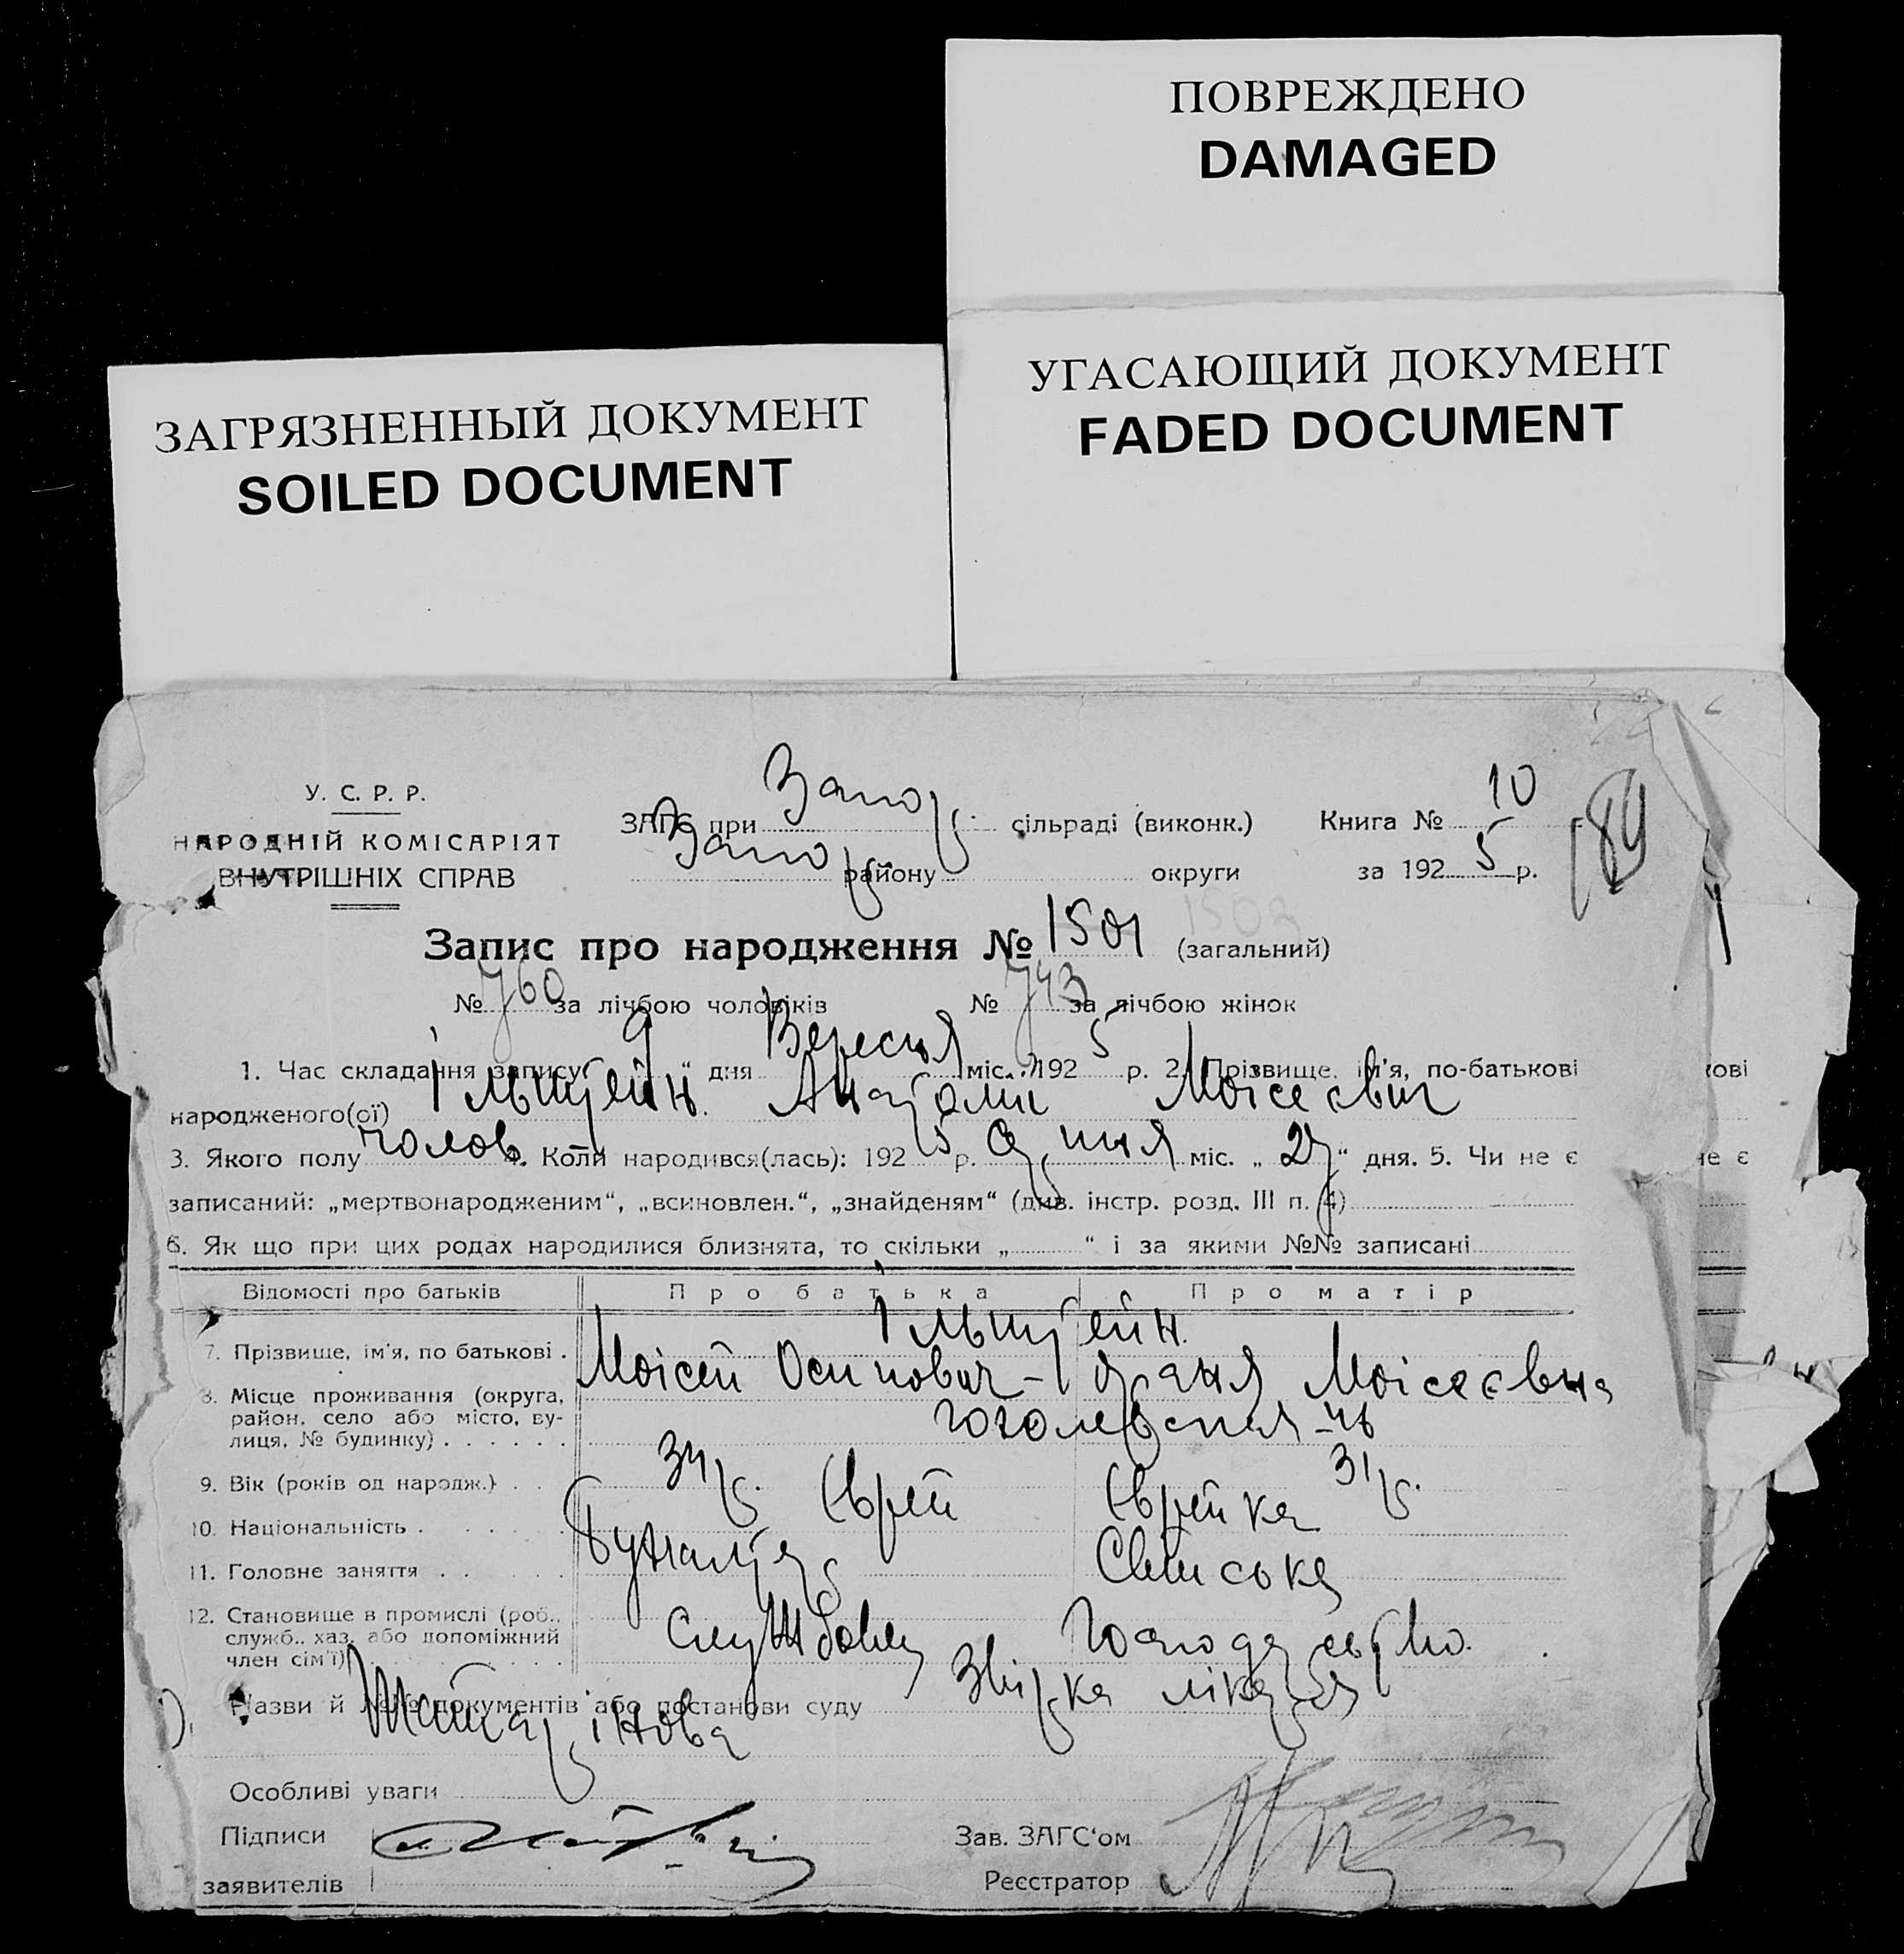 ПОВРЕЖДЕНО
DAMAGED
УГАСАЮЩИЙ ДОКУМЕНТ
FADED DOCUMENT
ЗАГРЯЗНЕННЫЙ ДОКУМЕНТ
SOILED DOCUMENT
У. С. Р. Р.
НАРОДНІЙ КОМІСАРІЯТ
ВНУТРІШНІХ СПРАВ
ЗАГС при Запор. сільраді (виконк.) Книга № 10
Запор. району округи за 1925 р.
Запис про народження № 1501 (загальний)
1503
№ 760 за лічбою чоловіків № 743 за лічбою жінок
1. Час складання запису 9 “ дня Вересня міс. 1925 р. 2. Прізвище, ім'я, по-батькові
народженого(ої) Ільштейн. Анатолій Моісеєвич
3. Якого полу чолов. 4. Коли народився(лась): 1925 р. Серпня міс. „ 27 “ дня. 5. Чи не є
записаний: „мертвонародженим“, „всиновлен.“, „знайденям“ (див. інстр. розд. III п. 4)
6. Як що при цих родах народилися близнята, то скільки „ “ і за якими №№ записані
Відомості про батьків Про батька Про матір
Ільштейн.
7. Прізвище, ім'я, по батькові . Моісей Осипович - Моісеєвна
8. Місце проживання (округа,
район, село або місто, ву-
лиця, № будинку) . . . . . . Гоголевская - 46
9. Вік (років од народж.) . . 34 р. 31 р.
10. Національність . . . . . . Єврей Єврейка
11. Головне заняття . . . . . Бухгалтер Сем'ська
12. Становище в промислі (роб.,
служб., хаз. або допоміжний
член сім'ї) Службовец Господарство.
Назви й №№ документів або постанови суду Звірка лікаря
Особливі уваги
Підписи
заявителів
Зав. ЗАГС‘ом
Реєстратор